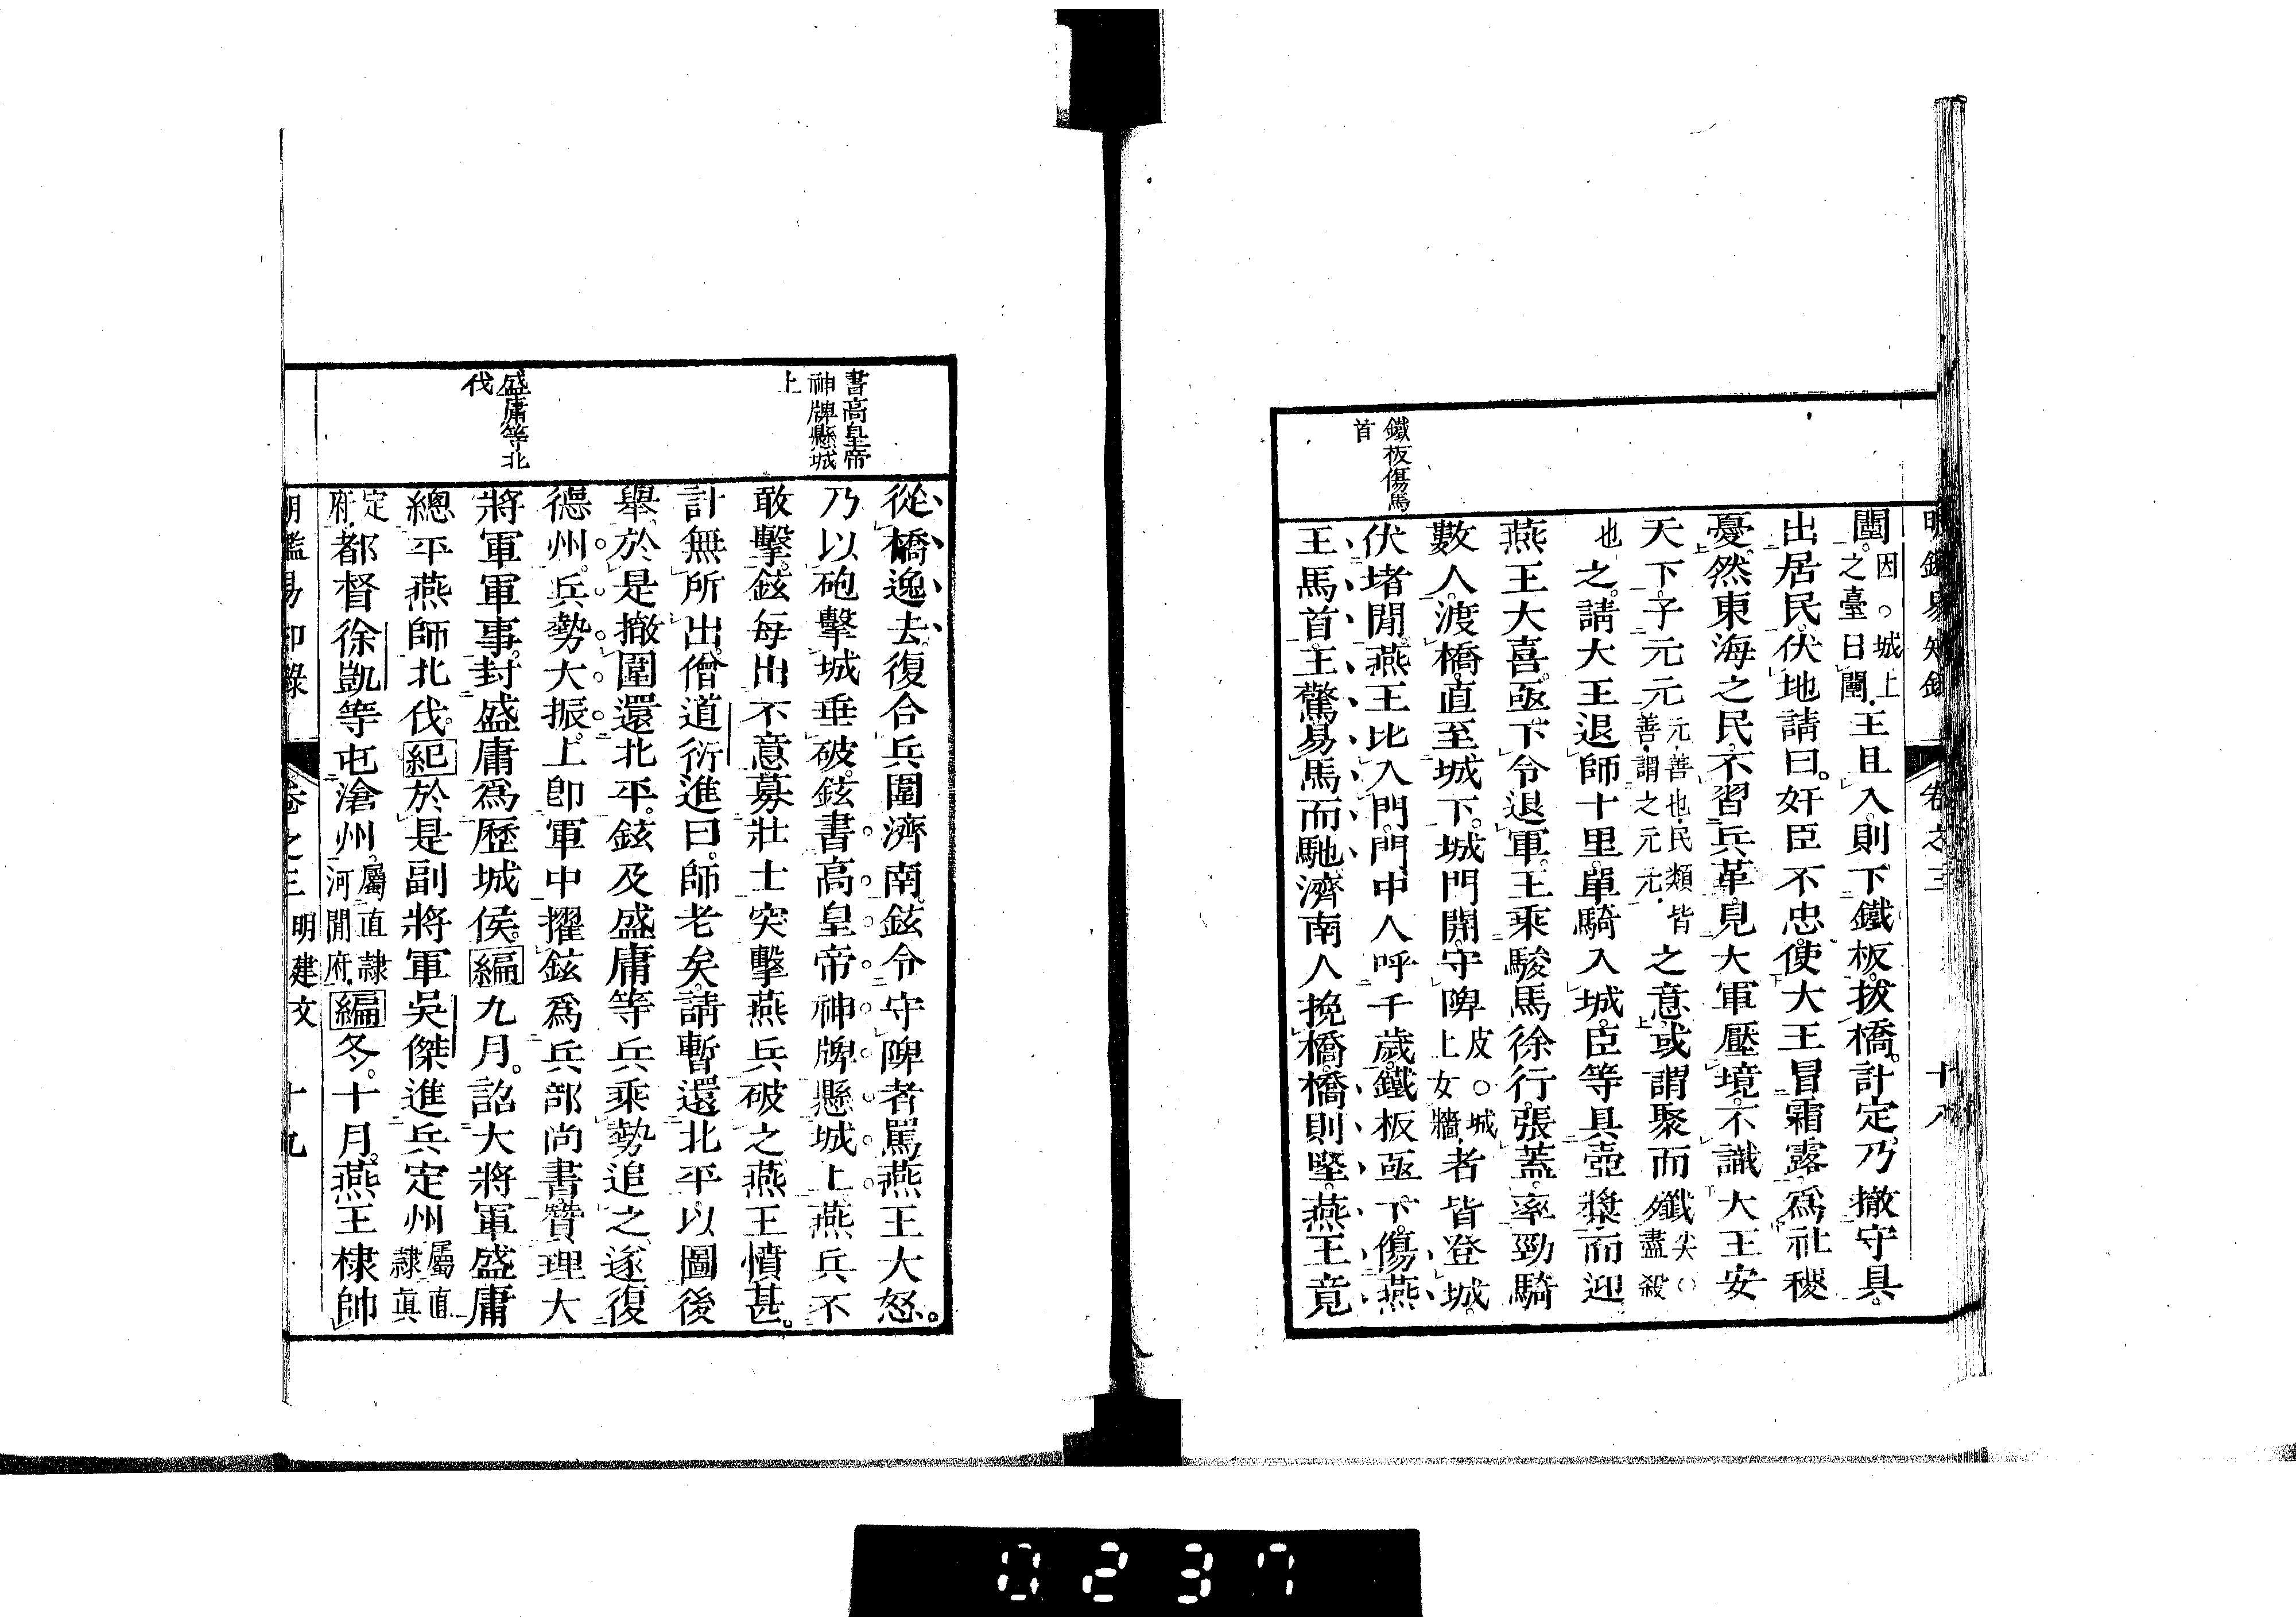 明鑑易知錄 卷之三 十八
鐵板傷馬
首
闉。因○城上之臺曰闉.王且入。則下鐵板。拔橋。計定。乃撤守具。
出居民。伏地請曰。奸臣不忠。使大王冒霜露。爲社稷
憂。然東海之民。不習兵革。見大軍壓境。不識大王安
天下。子元元元善也.民類皆善.謂之元元.之意。或謂聚而殲尖○盡殺
也之。請大王退師十里。單騎入城。臣等具壺漿而迎
燕王大喜。亟下令退軍。王乘駿馬徐行。張蓋。率勁騎
數人。渡橋。直至城下。城門開。守陴皮○城上女牆.者皆登城。
伏堵閒。燕王比入門。門中人呼千歲。鐵板亟下。傷燕
王馬首。王驚。易馬而馳。濟南人挽橋。橋則堅。燕王竟
書高皇帝
神牌懸城
上
盛庸等北
伐
從橋逸去。復合兵圍濟南。鉉令守陴者罵。燕王大怒。
乃以砲擊城。垂破。鉉書高皇帝神牌懸城上。燕兵不
敢擊。鉉每出不意。募壯士突擊燕兵。破之。燕王憤甚。
計無所出。僧道衍進曰。師老矣。請暫還北平。以圖後
舉。於是撤圍還北平。鉉及盛庸等兵乘勢追之。遂復
德州。兵勢大振。上卽軍中擢鉉爲兵部尚書。贊理大
將軍軍事。封盛庸爲歷城侯。編九月。詔大將軍盛庸
總平燕師北伐。紀於是副將軍吳傑進兵定州屬直隸眞
定府.都督徐凱等屯滄州。屬直隸河閒府.編冬。十月。燕王棣帥
明鑑易知錄 卷之三 明建文 十九
0237